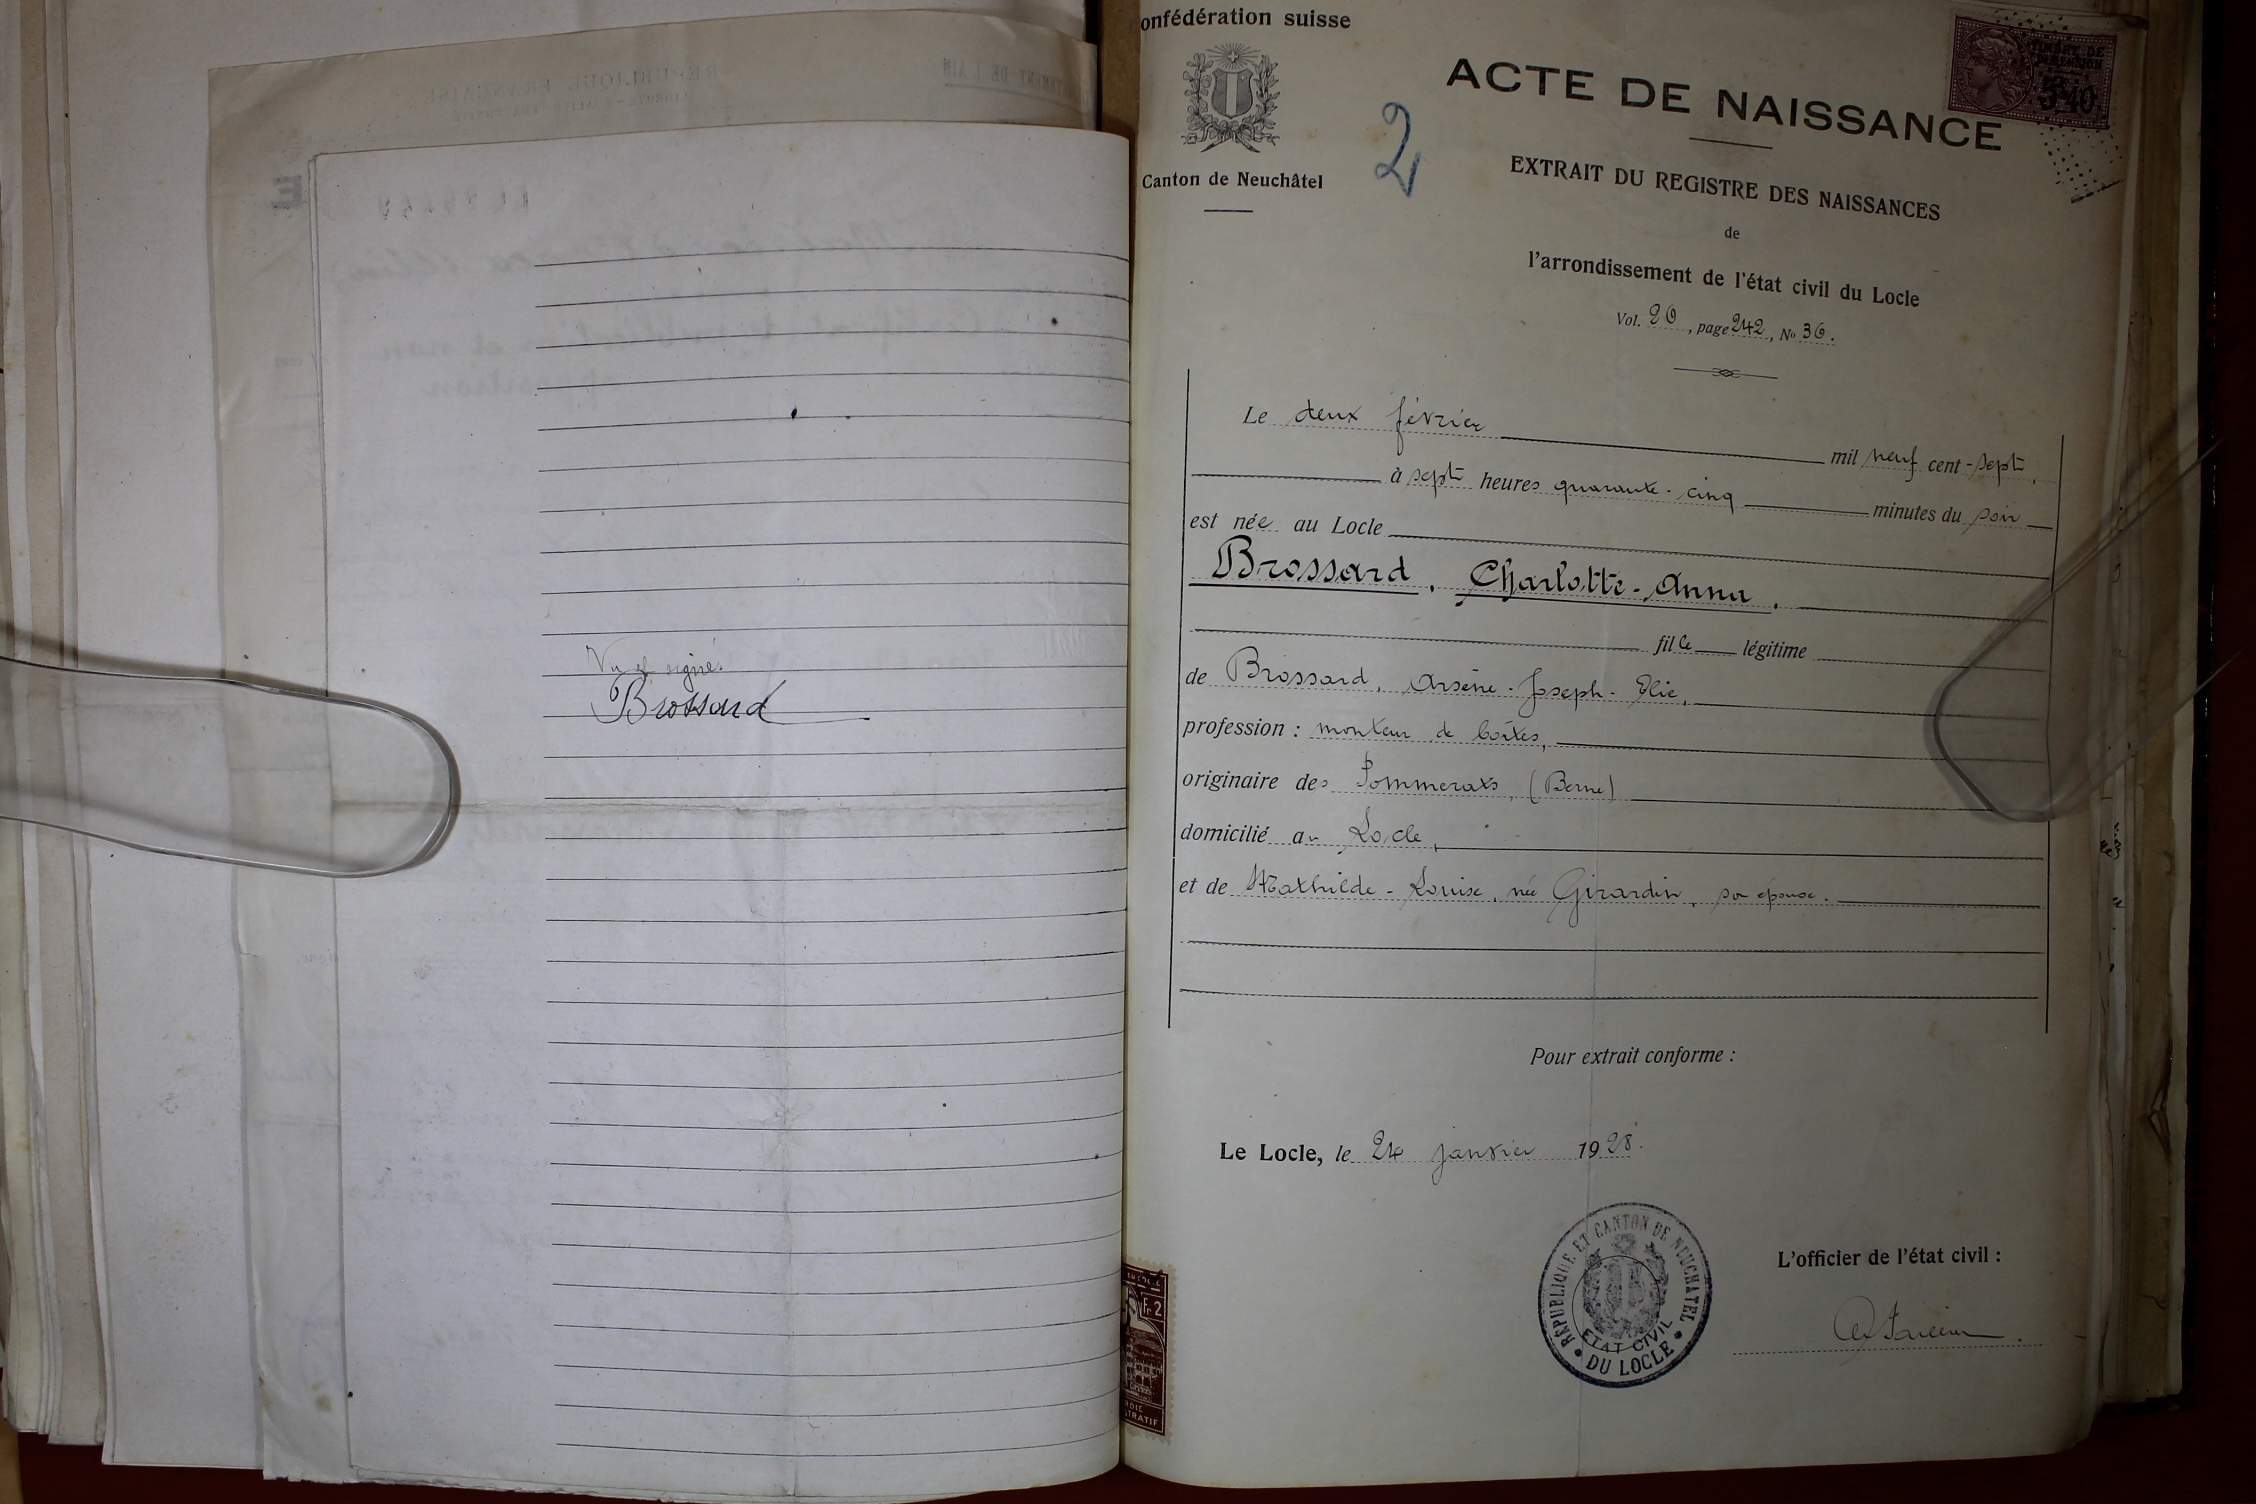 Vu et signé.
Brossard
onfédération suisse
Canton de Neuchâtel
2
ACTE DE NAISSANCE
EXTRAIT DU REGISTRE DES NAISSANCES
de
l'arrondissement de l'état civil du Locle
Vol. 20, page 242, No 36.
Le deux février mil neuf cent-sept,
à sept heures quarante-cinq minutes du soir
est née au Locle
Brossard, Charlotte-Anna,
fille légitime
de Brossard, Arsène-Joseph-Elie,
profession : monteur de boîtes,
originaire des Pommerats, (Berne)
domicilié au Locle,
et de Mathilde-Louise, née Girardin, son épouse.
Pour extrait conforme :
Le Locle, le 24 janvier 1928.
RÉPUBLIQUE ET CANTON DE NEUCHATEL
ETAT CIVIL
DU LOCLE
L'officier de l'état civil :
Fr. 2